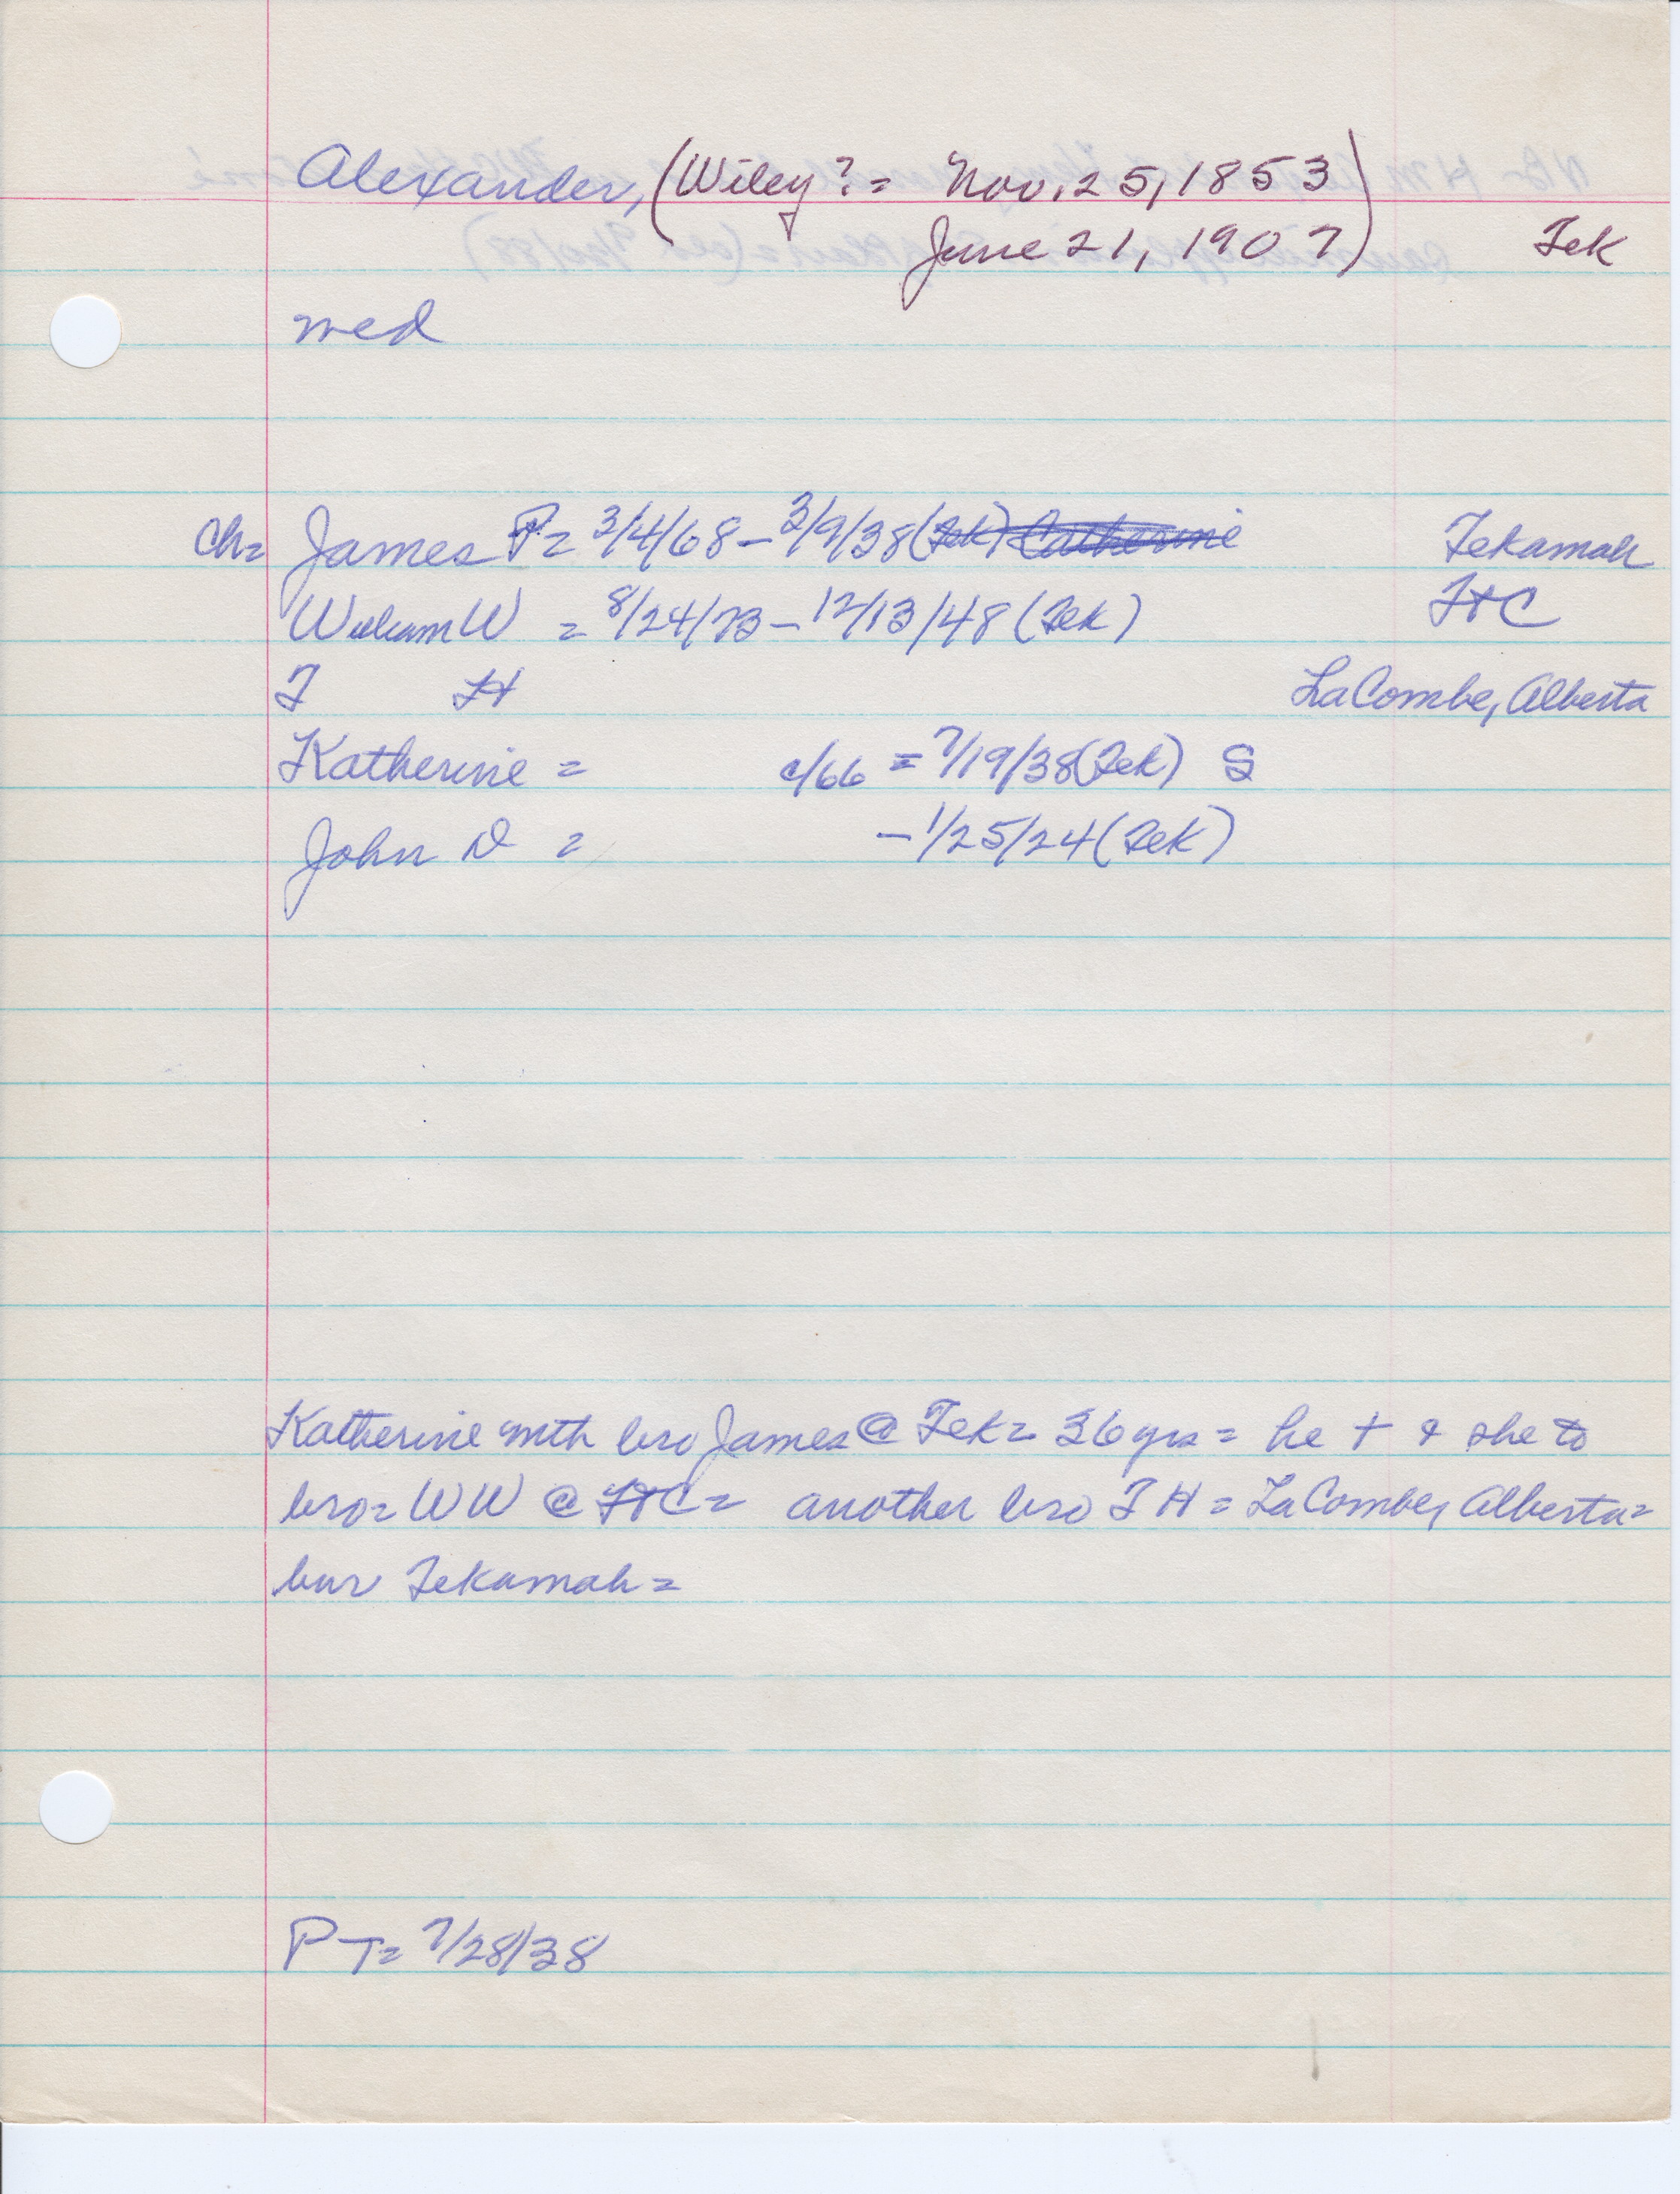 Alexander, (Wiley? = Nov. 25, 1853
June 21, 1907) Tek
med
Ch= James P= 3/4/68 - 3/9/38 (Tek) Catherine Tekamah
William W = 8/24/73 - 12/13/48 (Tek) Ft C
T H LaCombe, Alberta
Katherine = c/66 = 7/19/38 (Tek) S
John D = - 1/25/24 (Tek)
Katherine with bro James @ Tek= 36 yrs = he + & she to
bro= WW @ Ft C= another bro T H = LaCombe, Alberta=
bur Tekamah =
P T= 7/28/38